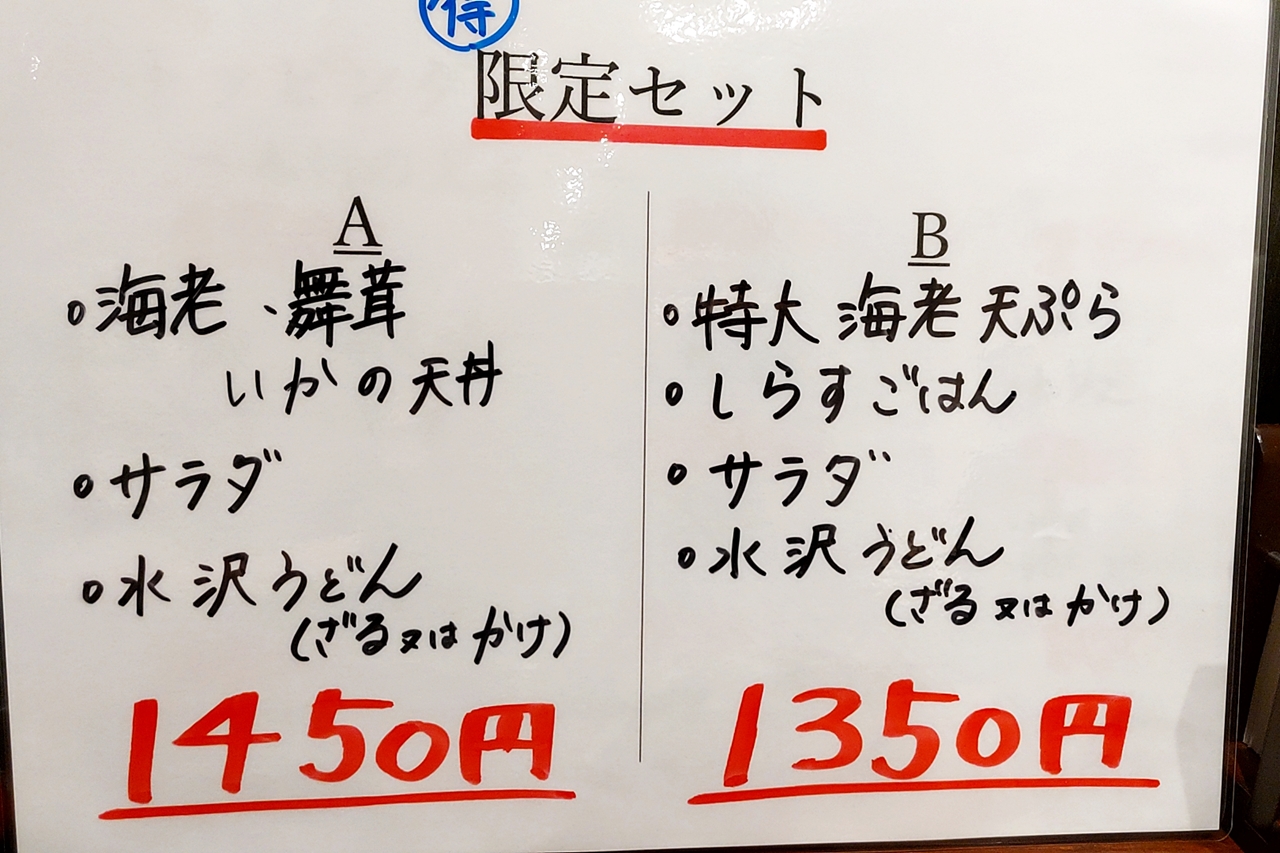 得
限定セット
A
◦海老、舞茸
いかの天丼
◦サラダ
◦水沢うどん
(ざる又はかけ)
1450円
B
◦特大海老天ぷら
◦しらすごはん
◦サラダ
◦水沢うどん
(ざる又はかけ)
1350円